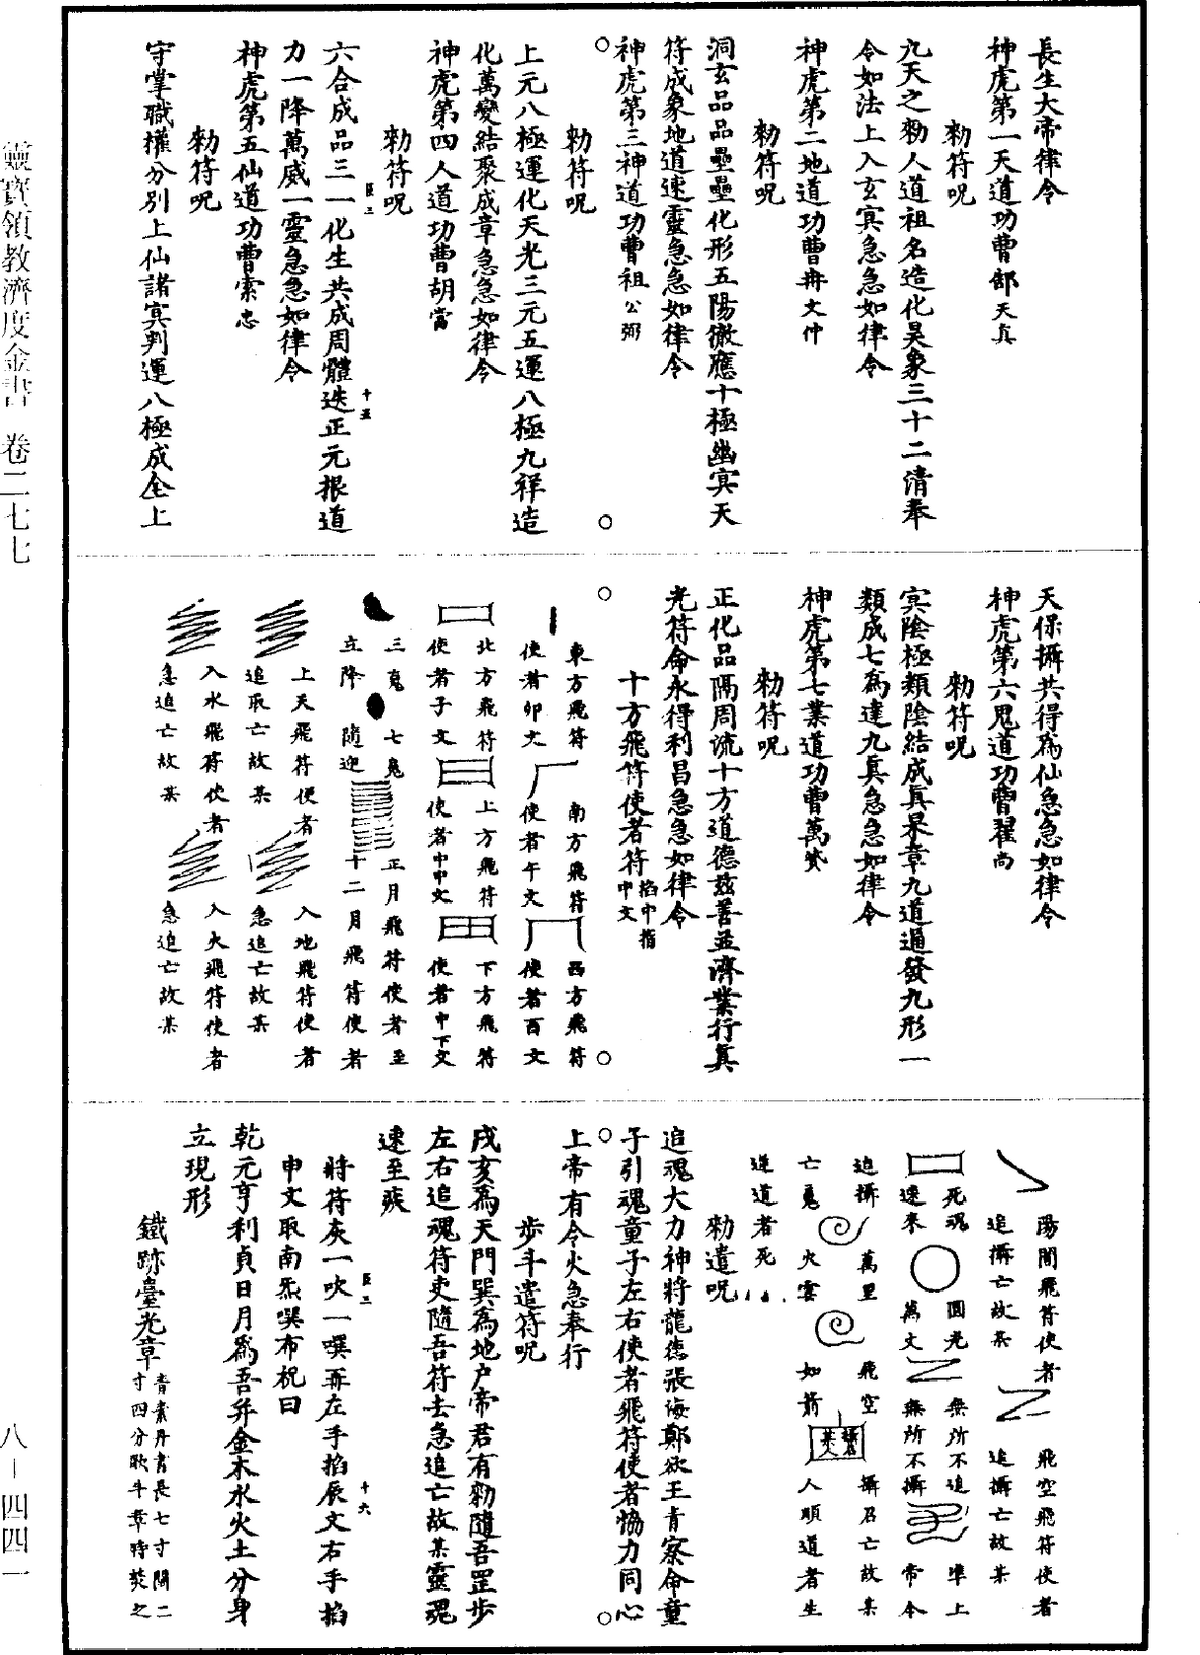 長生大帝律令
神虎第一天道功曹郜天真
勑符呪
九天之勑人道祖名造化昊象三十二清奉
令如法上入玄冥急急如律令
神虎第二地道功曹冉文仲
勑符呪
洞玄品品壘壘化形五陽徹應十極幽冥天
符成象地道速靈急急如律令
神虎第三神道功曹祖公弼
勑符呪
上元八極運化天光三元五運八極九祥造
化萬變結聚成章急急如律令
神虎第四人道功曹胡當
勑符呪
六合成品三一化生共成周體迭正元根道
力一降萬威一靈急急如律令
神虎第五仙道功曹索忠
勑符呪
守掌職權分別上仙諸冥判運八極成全上
天保攝共得為仙急急如律令
神虎第六鬼道功曹翟尚
勑符呪
冥陰極類陰結成真杲章九道遍發九形一
類成七為達九真急急如律令
神虎第七業道功曹萬贇
勑符呪
正化品隔周流十方道德茲善並濟業行真
光符命永得利昌急急如律令
十方飛符使者符掐中指中文
東方飛符使者卯文
南方飛符使者午文
西方飛符使者酉文
北方飛符使者子文
上方飛符使者中中文
下方飛符使者中下文
三䰟七䰟
立降隨迎
正月飛符使者至
十二月飛符使者
上天飛符使者
追取亡故某
入地飛符使者
急追亡故某
入水飛符使者
急追亡故某
入火飛符使者
急追亡故某
陽間飛符使者
追攝亡故某
飛空飛符使者
追攝亡故某
死魂速來
圓光萬丈
無所不追
無所不攝
準上帝令
追攝亡䰟
萬里火雲
飛空如箭
攝召亡故某
人順道者生
逆道者死
勑遣呪
追魂大力神將龍德張海鄭欲王青察命童
子引魂童子左右使者飛符使者恊力同心
上帝有令火急奉行
步斗遣符呪
戌亥為天門巽為地户帝君有勑隨吾罡步
左右追魂符吏隨吾符去急追亡故某靈魂
速至疾
將符灰一吹一噀再左手掐辰文右手掐
申文取南炁噀布祝曰
乾元亨利貞日月為吾弁金木水火土分身
立現形
鐵跡臺光章青素丹書長七寸闊二寸四分歌斗章時焚之
靈寶領教濟度金書　卷二七七
八－四四一